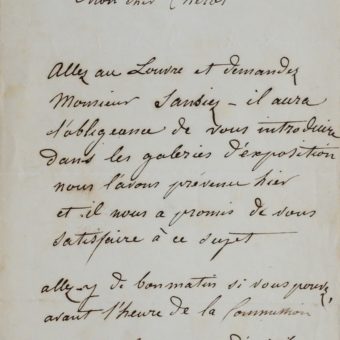 Mon cher
Allez au Louvre et demandez
Monsieur Sansiez - il aura
l'obligeance de vous introduire
dans les galeries d'exposition
nous l'avons prévenu hier
et il nous a promis de vous
satisfaire à ce sujet
allez-y de bon matin si vous pouvez,
avant l'heure de la Commission